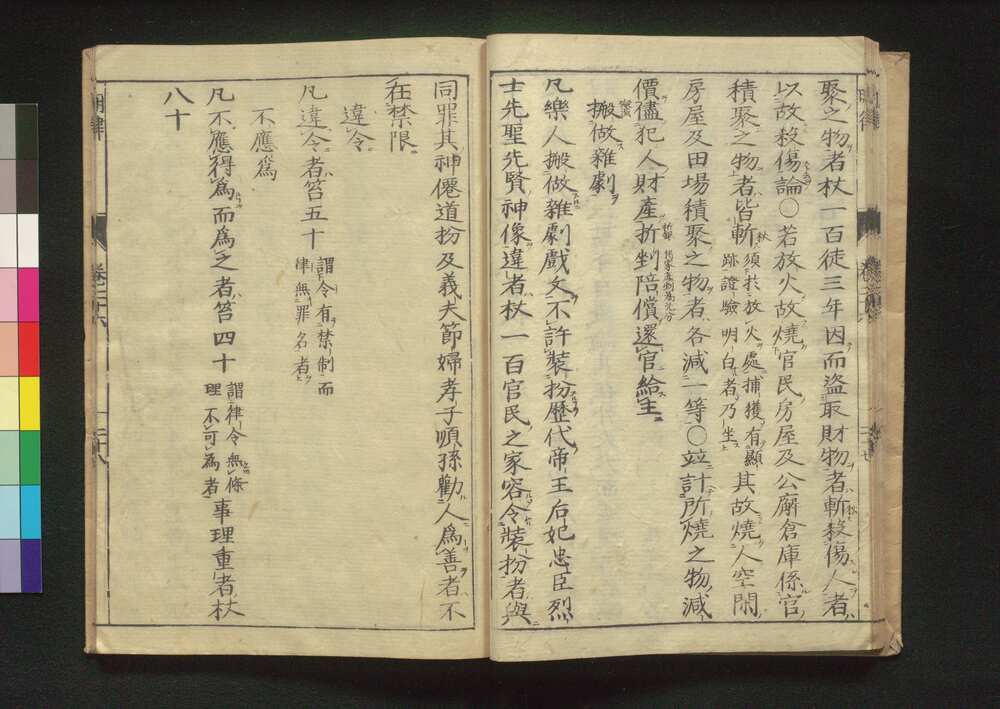 聚之物者杖一百徒三年因而盜取財物者斬殺傷人者
以故殺傷論〇若放火故燒官民房屋及公廨倉庫係官
積聚之物者皆斬須於放火處捕獲有顯跡證驗明白者乃坐其故燒人空閑
房屋及田場積聚之物者各減一等〇竝計所燒之物減
價儘犯人財產折剉賠償還官給主
搬做雜劇
凡樂人搬做雜劇戲文不許裝扮歷代帝王后妃忠臣烈
士先聖先賢神像違者杖一百官民之家容令裝扮者與
同罪其神僊道扮及義夫節婦孝子順孫勸人爲善者不
在禁限
違令
凡違令者笞五十謂令有禁制而律無罪名者
不應爲
凡不應得爲而爲之者笞四十謂律令無條理不可為者事理重者杖
八十
明律
卷二十六
二十八